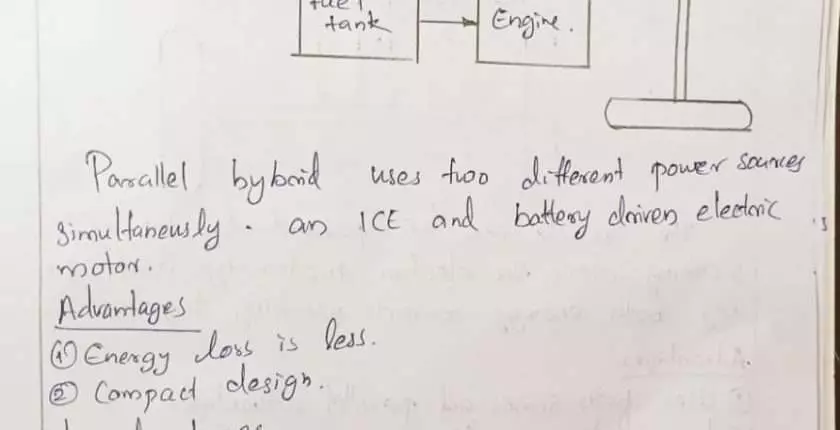 fuel
tank
Engine.
Parallel hybrid uses two different power sources
simultaneusly. an ICE and battery driven electric
motor.
Advantages
① Energy loss is less.
② Compact design.